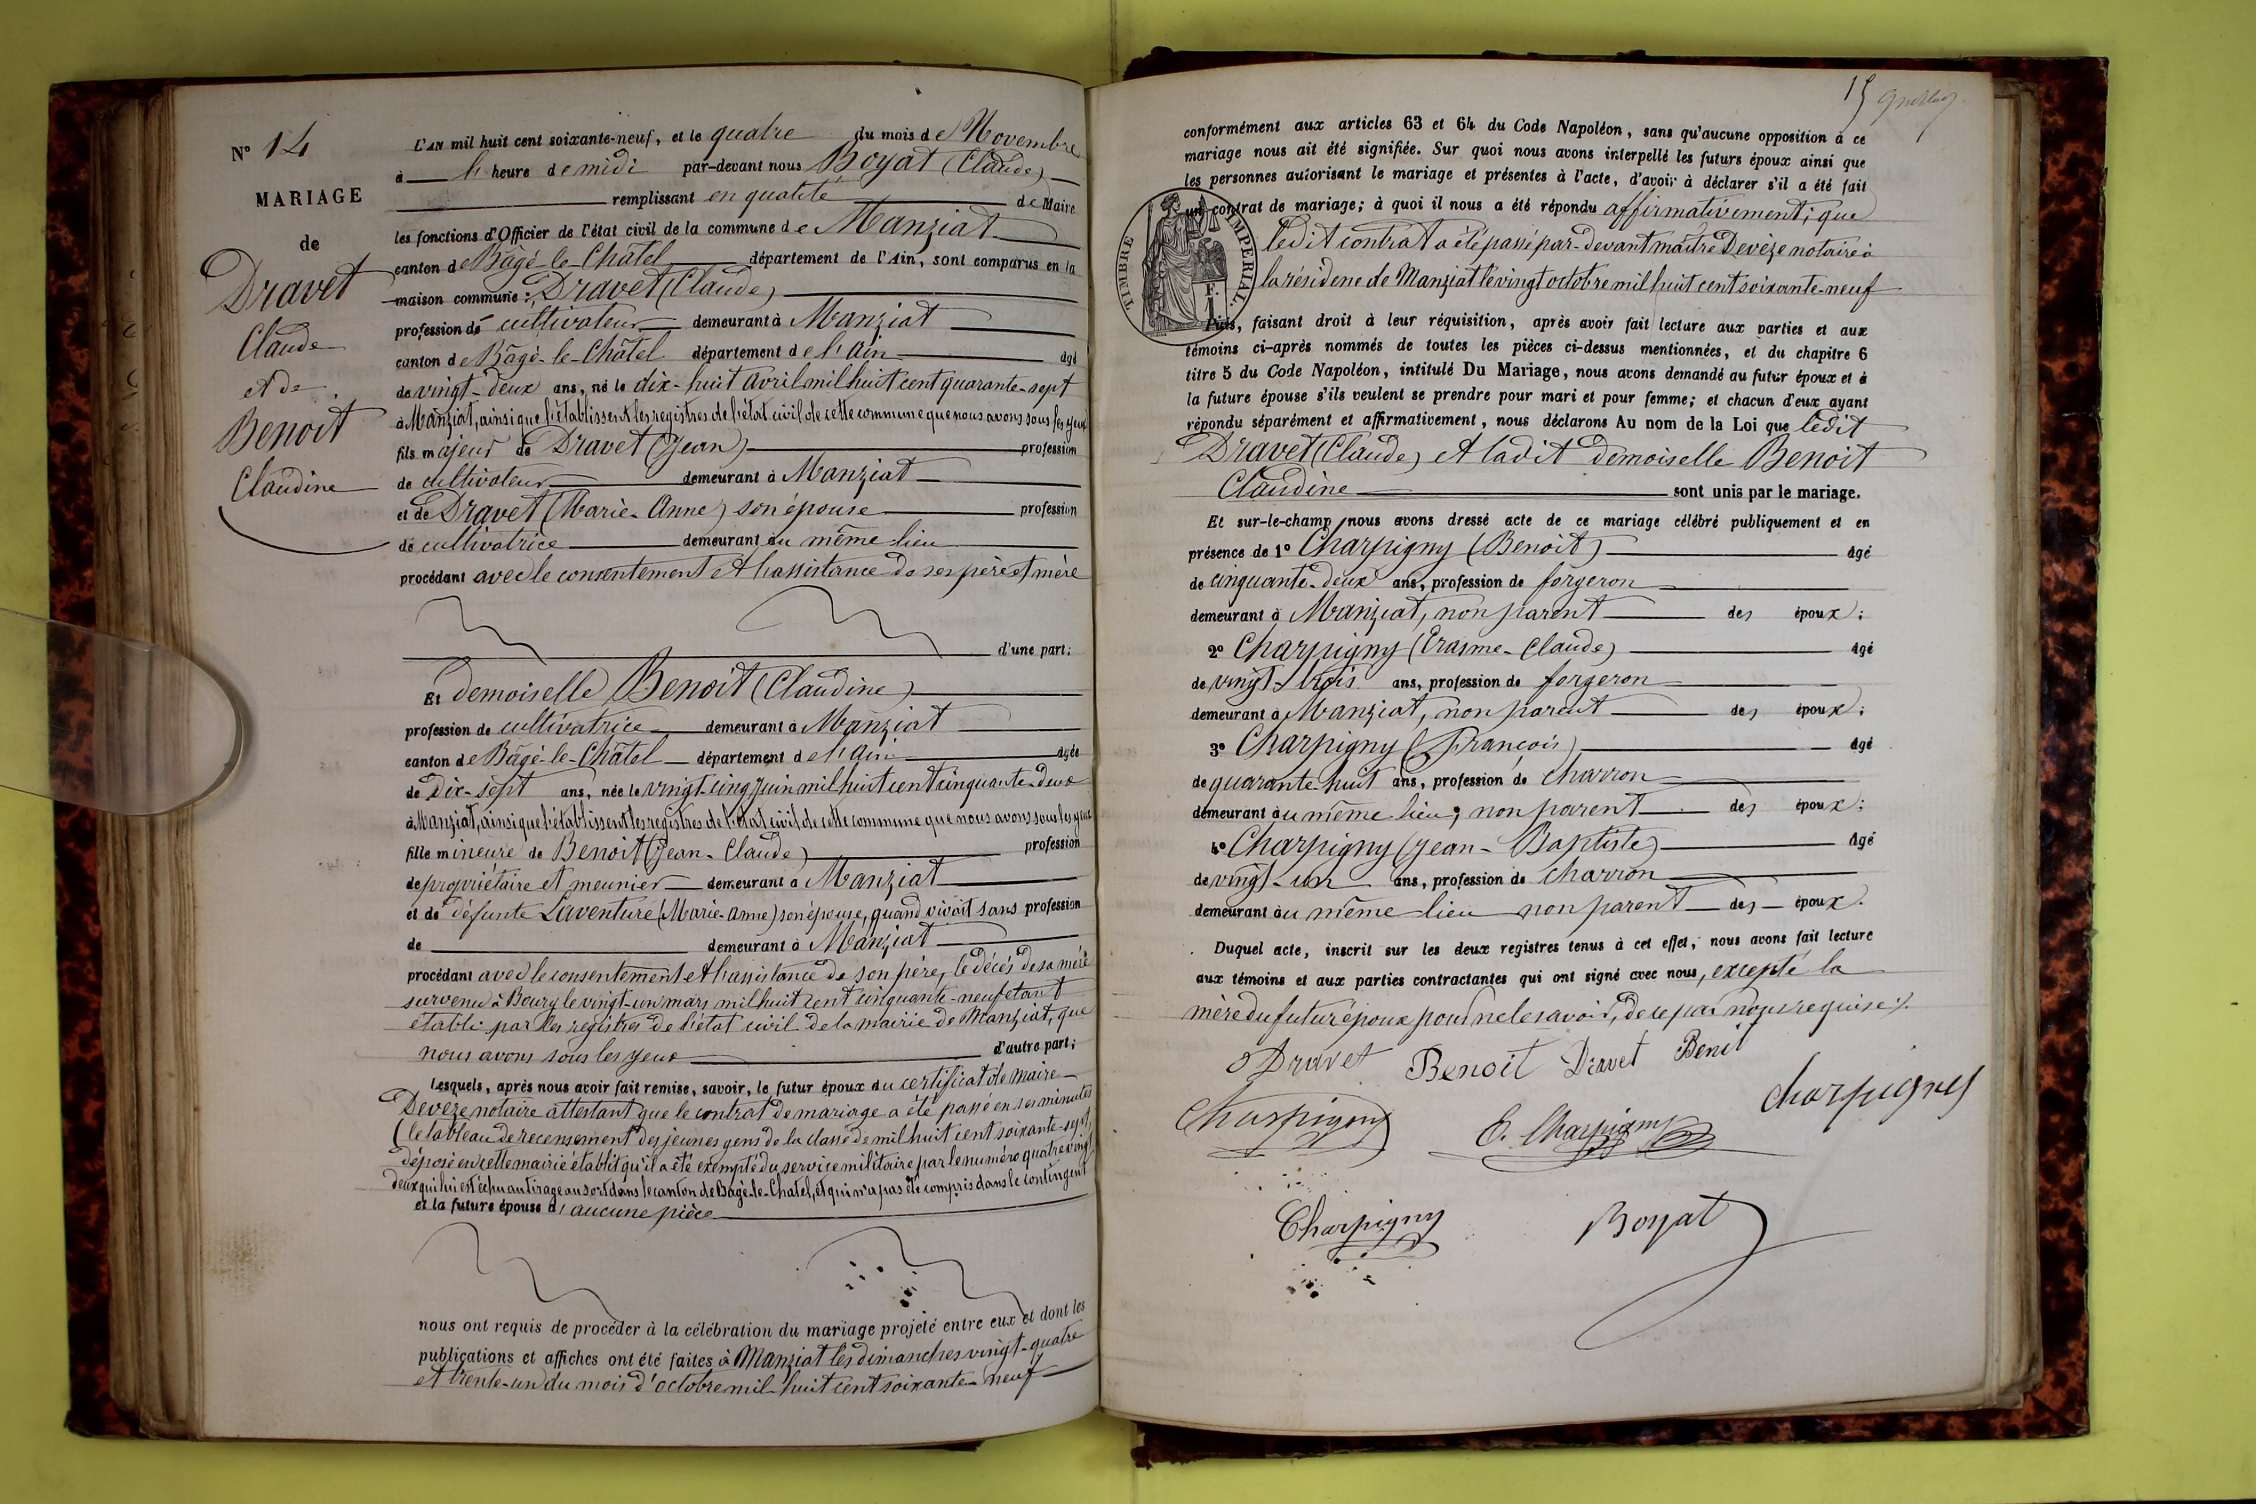 N° 14
MARIAGE
de
Dravet
Claude
et de
Benoit
Claudine
L'AN mil huit cent soixante-neuf, et le quatre du mois de Novembre
à l' heure de midi par-devant nous Boyat (Claude)
remplissant en qualité de Maire
les fonctions d'Officier de l'état civil de la commune de Manziat
canton de Bâgé-le-Châtel département de l'Ain, sont comparus en la
maison commune : Dravet (Claude)
profession de cultivateur demeurant à Manziat
canton de Bâgé-le-Châtel département de l'Ain âgé
de vingt-deux ans, né le dix-huit avril mil huit cent quarante-sept
à Manziat, ainsi que l'établissent les registres de l'état civil de cette commune que nous avons sous les yeux
fils majeur de Dravet (Jean) profession
de cultivateur demeurant à Manziat
et de Dravet (Marie-Anne) son épouse profession
de cultivatrice demeurant au même lieu
procédant avec le consentement et l'assistance de ses père et mère
d'une part;
Et demoiselle Benoit (Claudine)
profession de cultivatrice demeurant à Manziat
canton de Bâgé-le-Châtel département de l'Ain âgée
de Dix-sept ans, née le vingt-cinq juin mil huit cent cinquante-deux
à Manziat, ainsi que l'établissent les registres de l'état civil de cette commune que nous avons sous les yeux
fille mineure de Benoit (Jean-Claude) profession
de propriétaire et meunier demeurant à Manziat
et de défunte Laventure (Marie-Anne) son épouse, quand vivait sans profession
de demeurant à Manziat
procédant avec le consentement et l'assistance de son père, le décès de sa mère
survenu à Bourg le vingt-un mars mil huit cent cinquante-neuf étant
établi par les registres de l'état civil de la mairie de Manziat, que
nous avons sous les yeux d'autre part;
Lesquels, après nous avoir fait remise, savoir, le futur époux du certificat de Maire
Devèze notaire attestant que le contrat de mariage a été passé en ses minutes
(le tableau de recensement des jeunes gens de la classe de mil huit cent soixante-sept,
déposé en cette mairie établit qu'il a été exempté du service militaire par le numéro quatre vingt
deux qui lui est échu au tirage au sort dans le canton de Bagé-le-Chatel, et qui n'a pas été compris dans le contingent
et la future épouse d'aucune pièce
nous ont requis de procéder à la célébration du mariage projeté entre eux et dont les
publications et affiches ont été faites à Manziat les dimanches vingt-quatre
et trente-un du mois d'octobre mil huit cent soixante-neuf
15
conformément aux articles 63 et 64 du Code Napoléon, sans qu'aucune opposition à ce
mariage nous ait été signifiée. Sur quoi nous avons interpellé les futurs époux ainsi que
les personnes autorisant le mariage et présentes à l'acte, d'avoir à déclarer s'il a été fait
un contrat de mariage; à quoi il nous a été répondu affirmativement; que
TIMBRE IMPERIAL.
1 F.
ledit contrat a été passé par-devant maître Devèze notaire à
la résidence de Manziat le vingt octobre mil huit cent soixante-neuf
Puis, faisant droit à leur réquisition, après avoir fait lecture aux parties et aux
témoins ci-après nommés de toutes les pièces ci-dessus mentionnées, et du chapitre 6
titre 5 du Code Napoléon, intitulé Du Mariage, nous avons demandé au futur époux et à
la future épouse s'ils veulent se prendre pour mari et pour femme; et chacun d'eux ayant
répondu séparément et affirmativement, nous déclarons Au nom de la Loi que ledit
Dravet (Claude) et ladit demoiselle Benoit
Claudine sont unis par le mariage.
Et sur-le-champ nous avons dressé acte de ce mariage célébré publiquement et en
présence de 1° Charpigny (Benoit) âgé
de cinquante-deux ans, profession de forgeron
demeurant à Manziat, non parent des époux;
2° Charpigny (Erasme-Claude) âgé
de vingt-trois ans, profession de forgeron
demeurant à Manziat, non parent des époux;
3° Charpigny (François) âgé
de quarante-huit ans, profession de charron
demeurant au même lieu, non parent des époux;
4° Charpigny (Jean-Baptiste) âgé
de vingt-un ans, profession de charron
demeurant au même lieu non parent des époux.
Duquel acte, inscrit sur les deux registres tenus à cet effet, nous avons fait lecture
aux témoins et aux parties contractantes qui ont signé avec nous, excepté la
mère du futur époux pour ne le savoir, de ce par nous requise.
Dravet Benoit Dravet Benoit
Charpigny E. Charpigny Charpigny
Charpigny Boyat